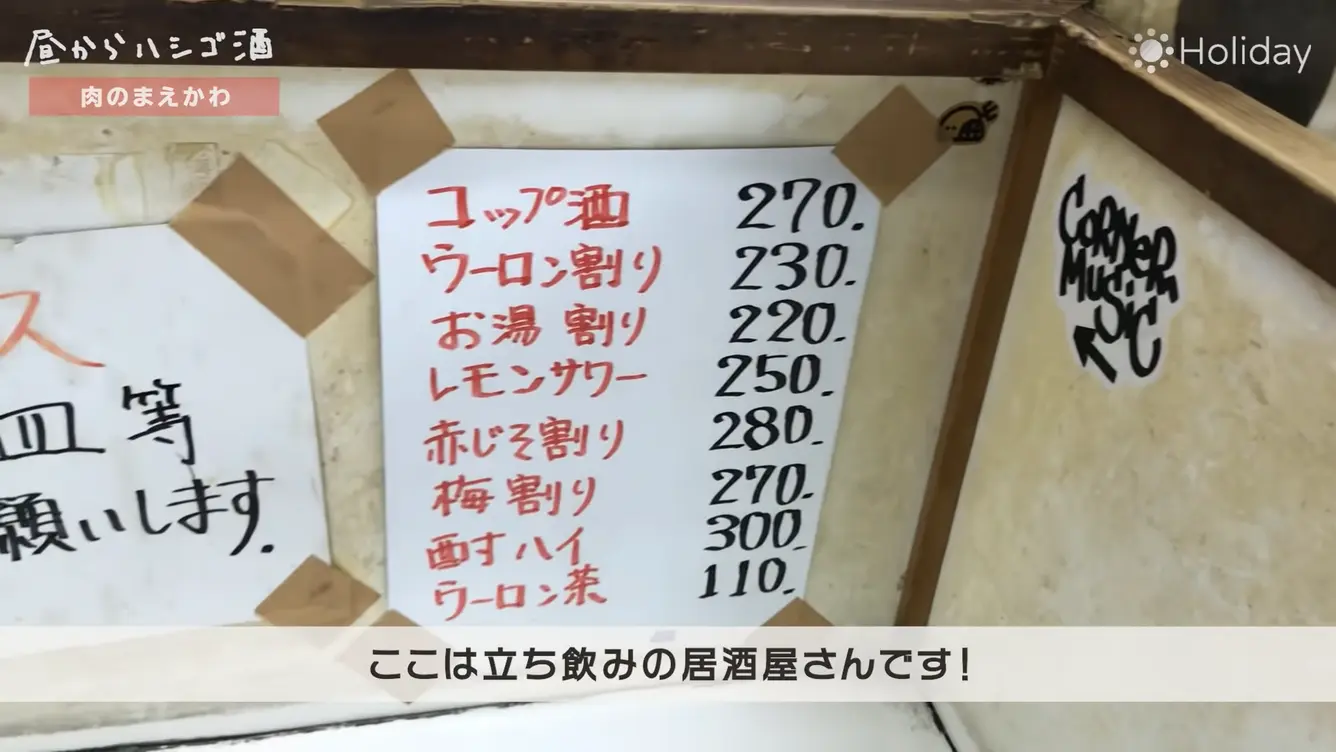 昼からハシゴ酒
肉のまえかわ
Holiday
コップ酒 270.
ウーロン割り 230.
お湯割り 220.
レモンサワー 250.
赤じそ割り 280.
梅割り 270.
酎すハイ 300.
ウーロン茶 110.
ス
皿等
願いします.
CORNER
MUSiC
ここは立ち飲みの居酒屋さんです!